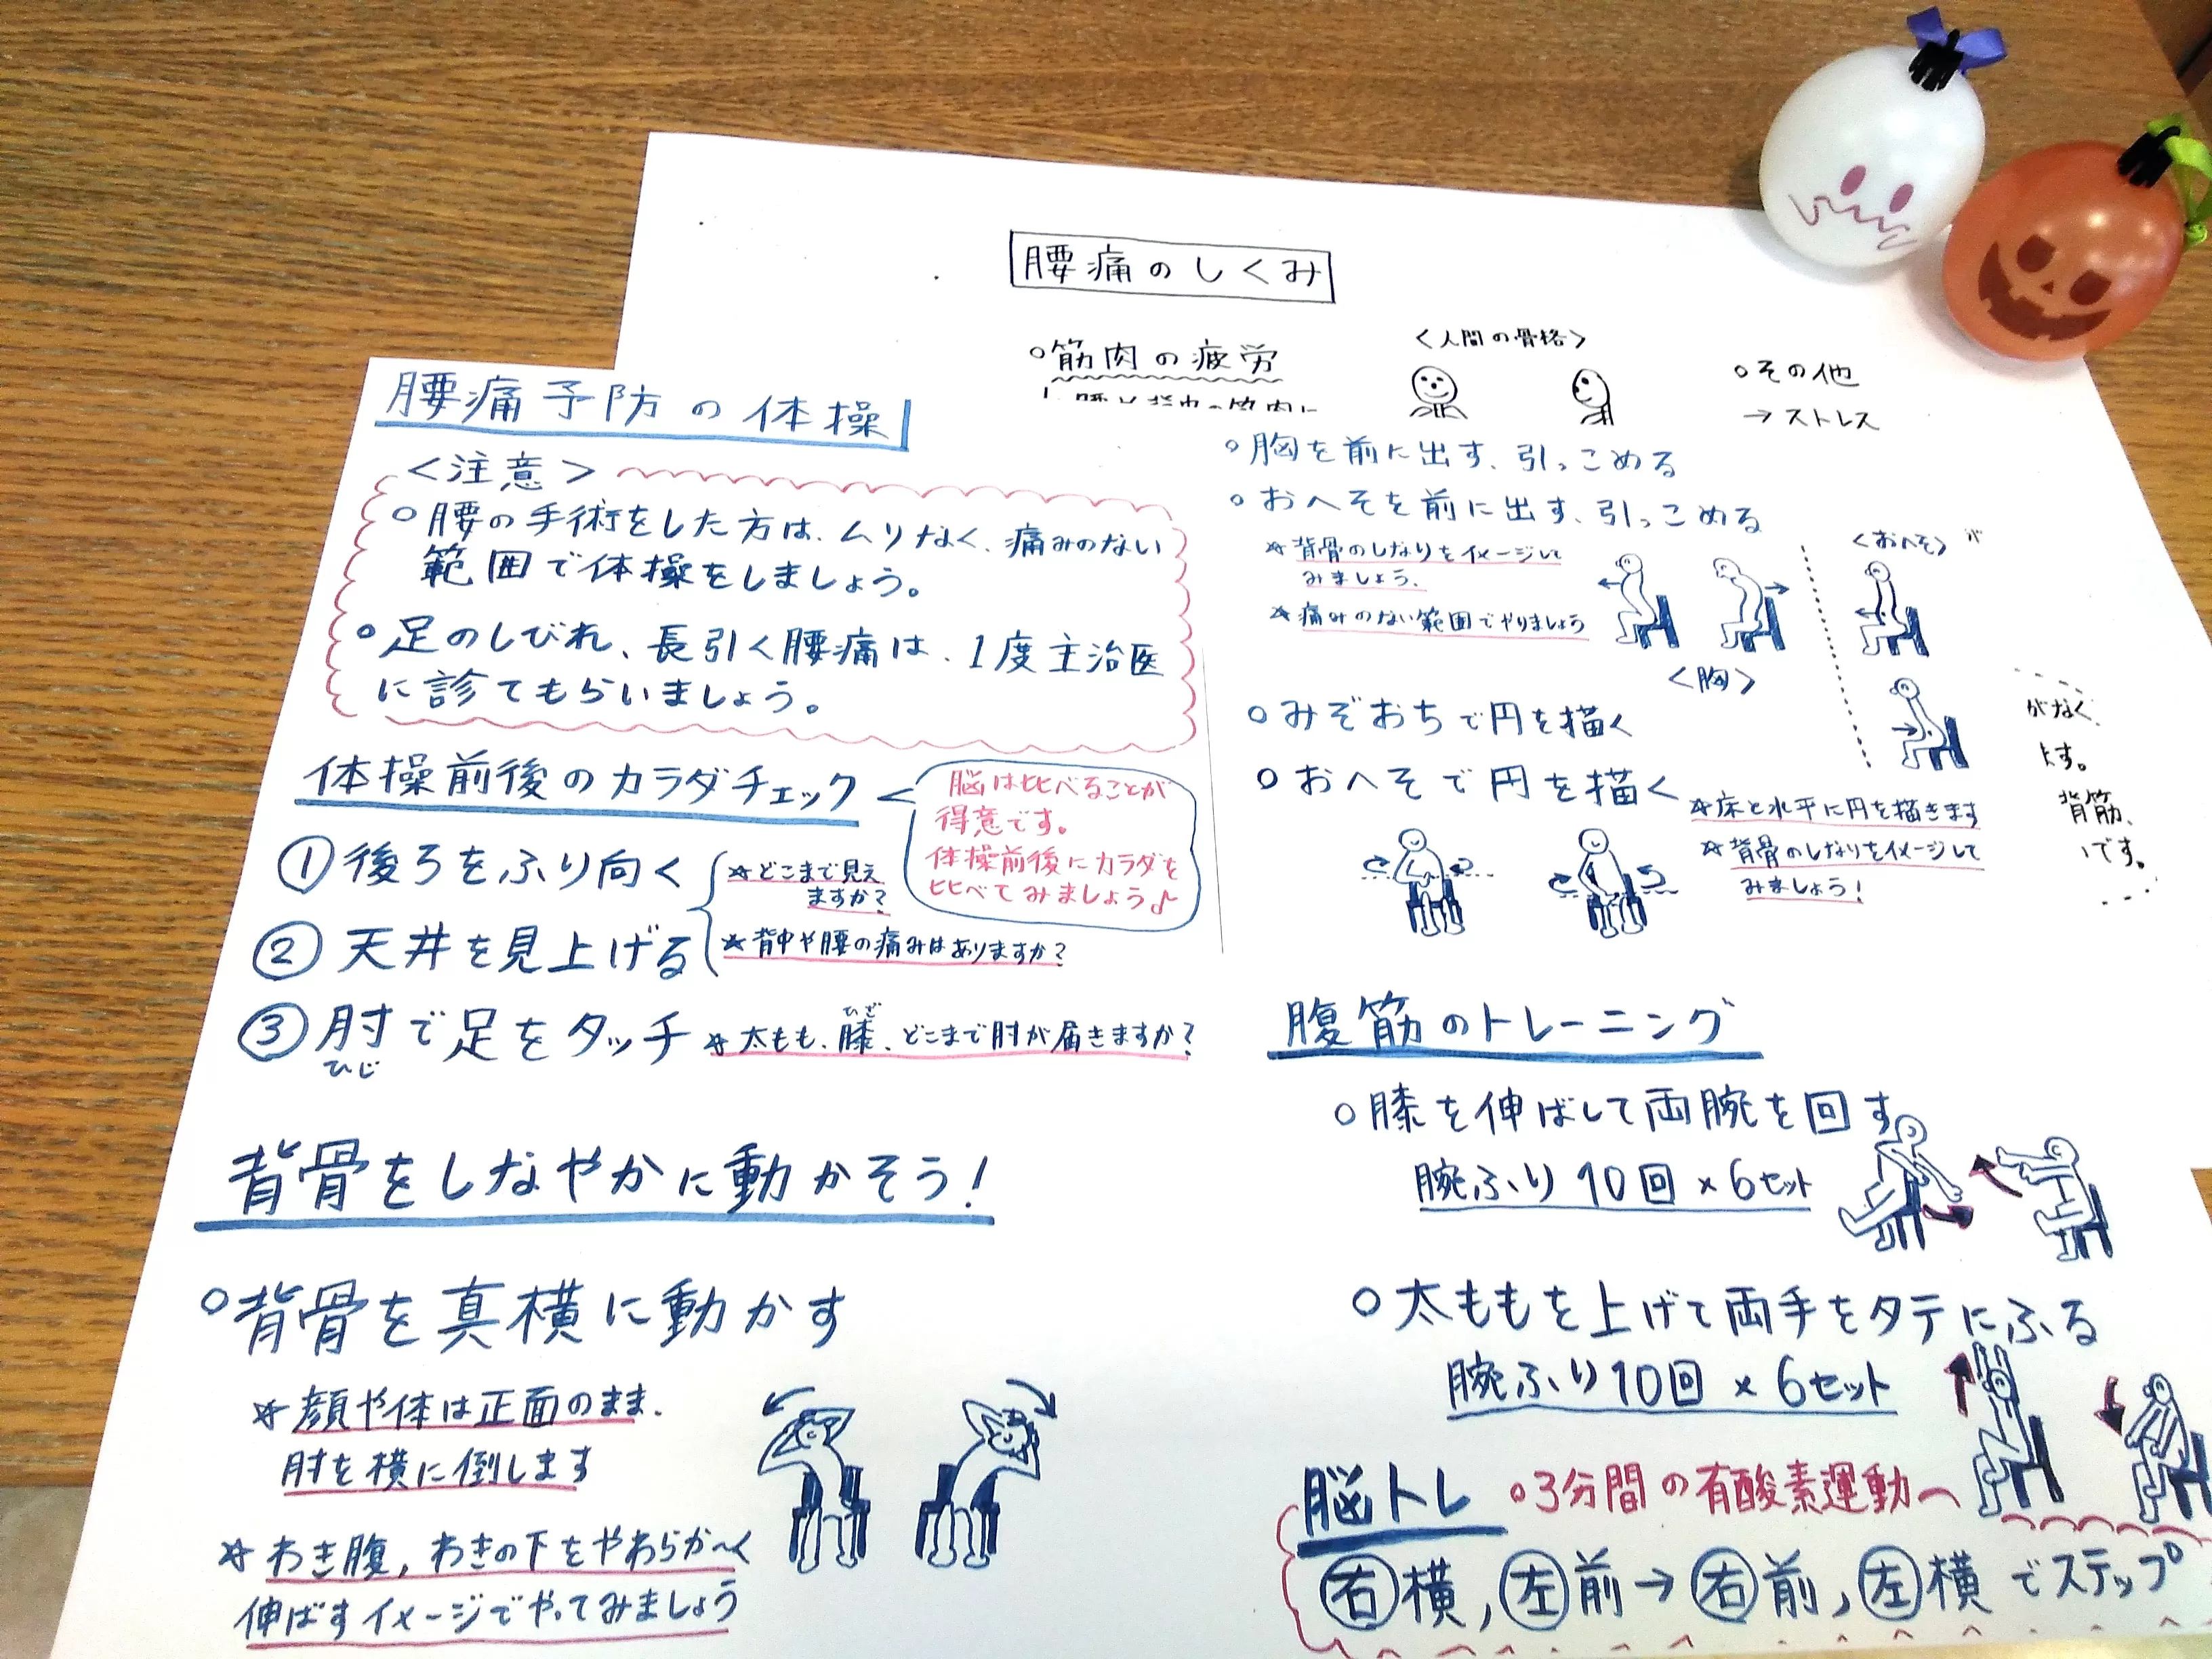 腰痛のしくみ
○筋肉の疲労
<人間の骨格>
○その他
→ストレス
腰痛予防の体操
<注意>
○腰の手術をした方は、ムリなく、痛みのない
範囲で体操をしましょう。
○足のしびれ、長引く腰痛は、1度主治医
に診てもらいましょう。
体操前後のカラダチェック
脳は比べることが
得意です。
体操前後にカラダを
比べてみましょう♪
①後ろをふり向く
②天井を見上げる
☆どこまで見え
ますか?
☆背中や腰の痛みはありますか?
③肘で足をタッチ
ひじ
☆太もも、膝、どこまで肘が届きますか?
ひざ
背骨をしなやかに動かそう!
○背骨を真横に動かす
☆顔や体は正面のまま、
肘を横に倒します
☆わき腹,わきの下をやわらか〜く
伸ばすイメージでやってみましょう
○胸を前に出す、引っこめる
○おへそを前に出す、引っこめる
☆背骨のしなりをイメージして
みましょう、
☆痛みのない範囲でやりましょう
<胸>
<おへそ>
○みぞおちで円を描く
○おへそで円を描く
☆床と水平に円を描きます
☆背骨のしなりをイメージして
みましょう!
がなく、
ます。
背筋、
です。
腹筋のトレーニング
○膝を伸ばして両腕を回す
腕ふり10回×6セット
○太ももを上げて両手をタテにふる
腕ふり10回×6セット
脳トレ ○3分間の有酸素運動〜
右横,左前→右前,左横でステップ